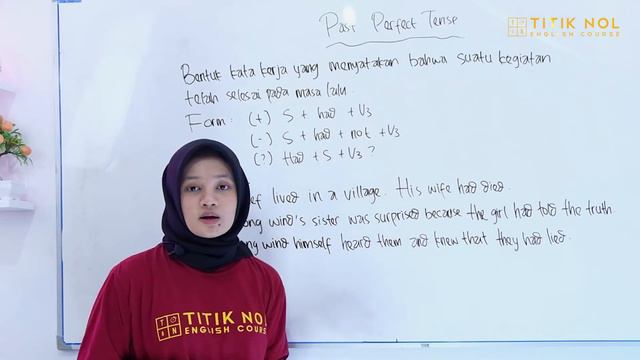 Past Perfect Tense
TITIK NOL
ENGLISH COURSE
Bentuk kata kerja yang menyatakan bahwa suatu kegiatan
telah selesai pada masa lalu.
Form: (+) S + had + V3
(-) S + had + not + V3
(?) Had + S + V3 ?
lived in a village. His wife had died.
wind's sister was surprised because the girl had told the truth.
wind himself heard them and knew that they had lied.
TITIK NOL
ENGLISH COURSE